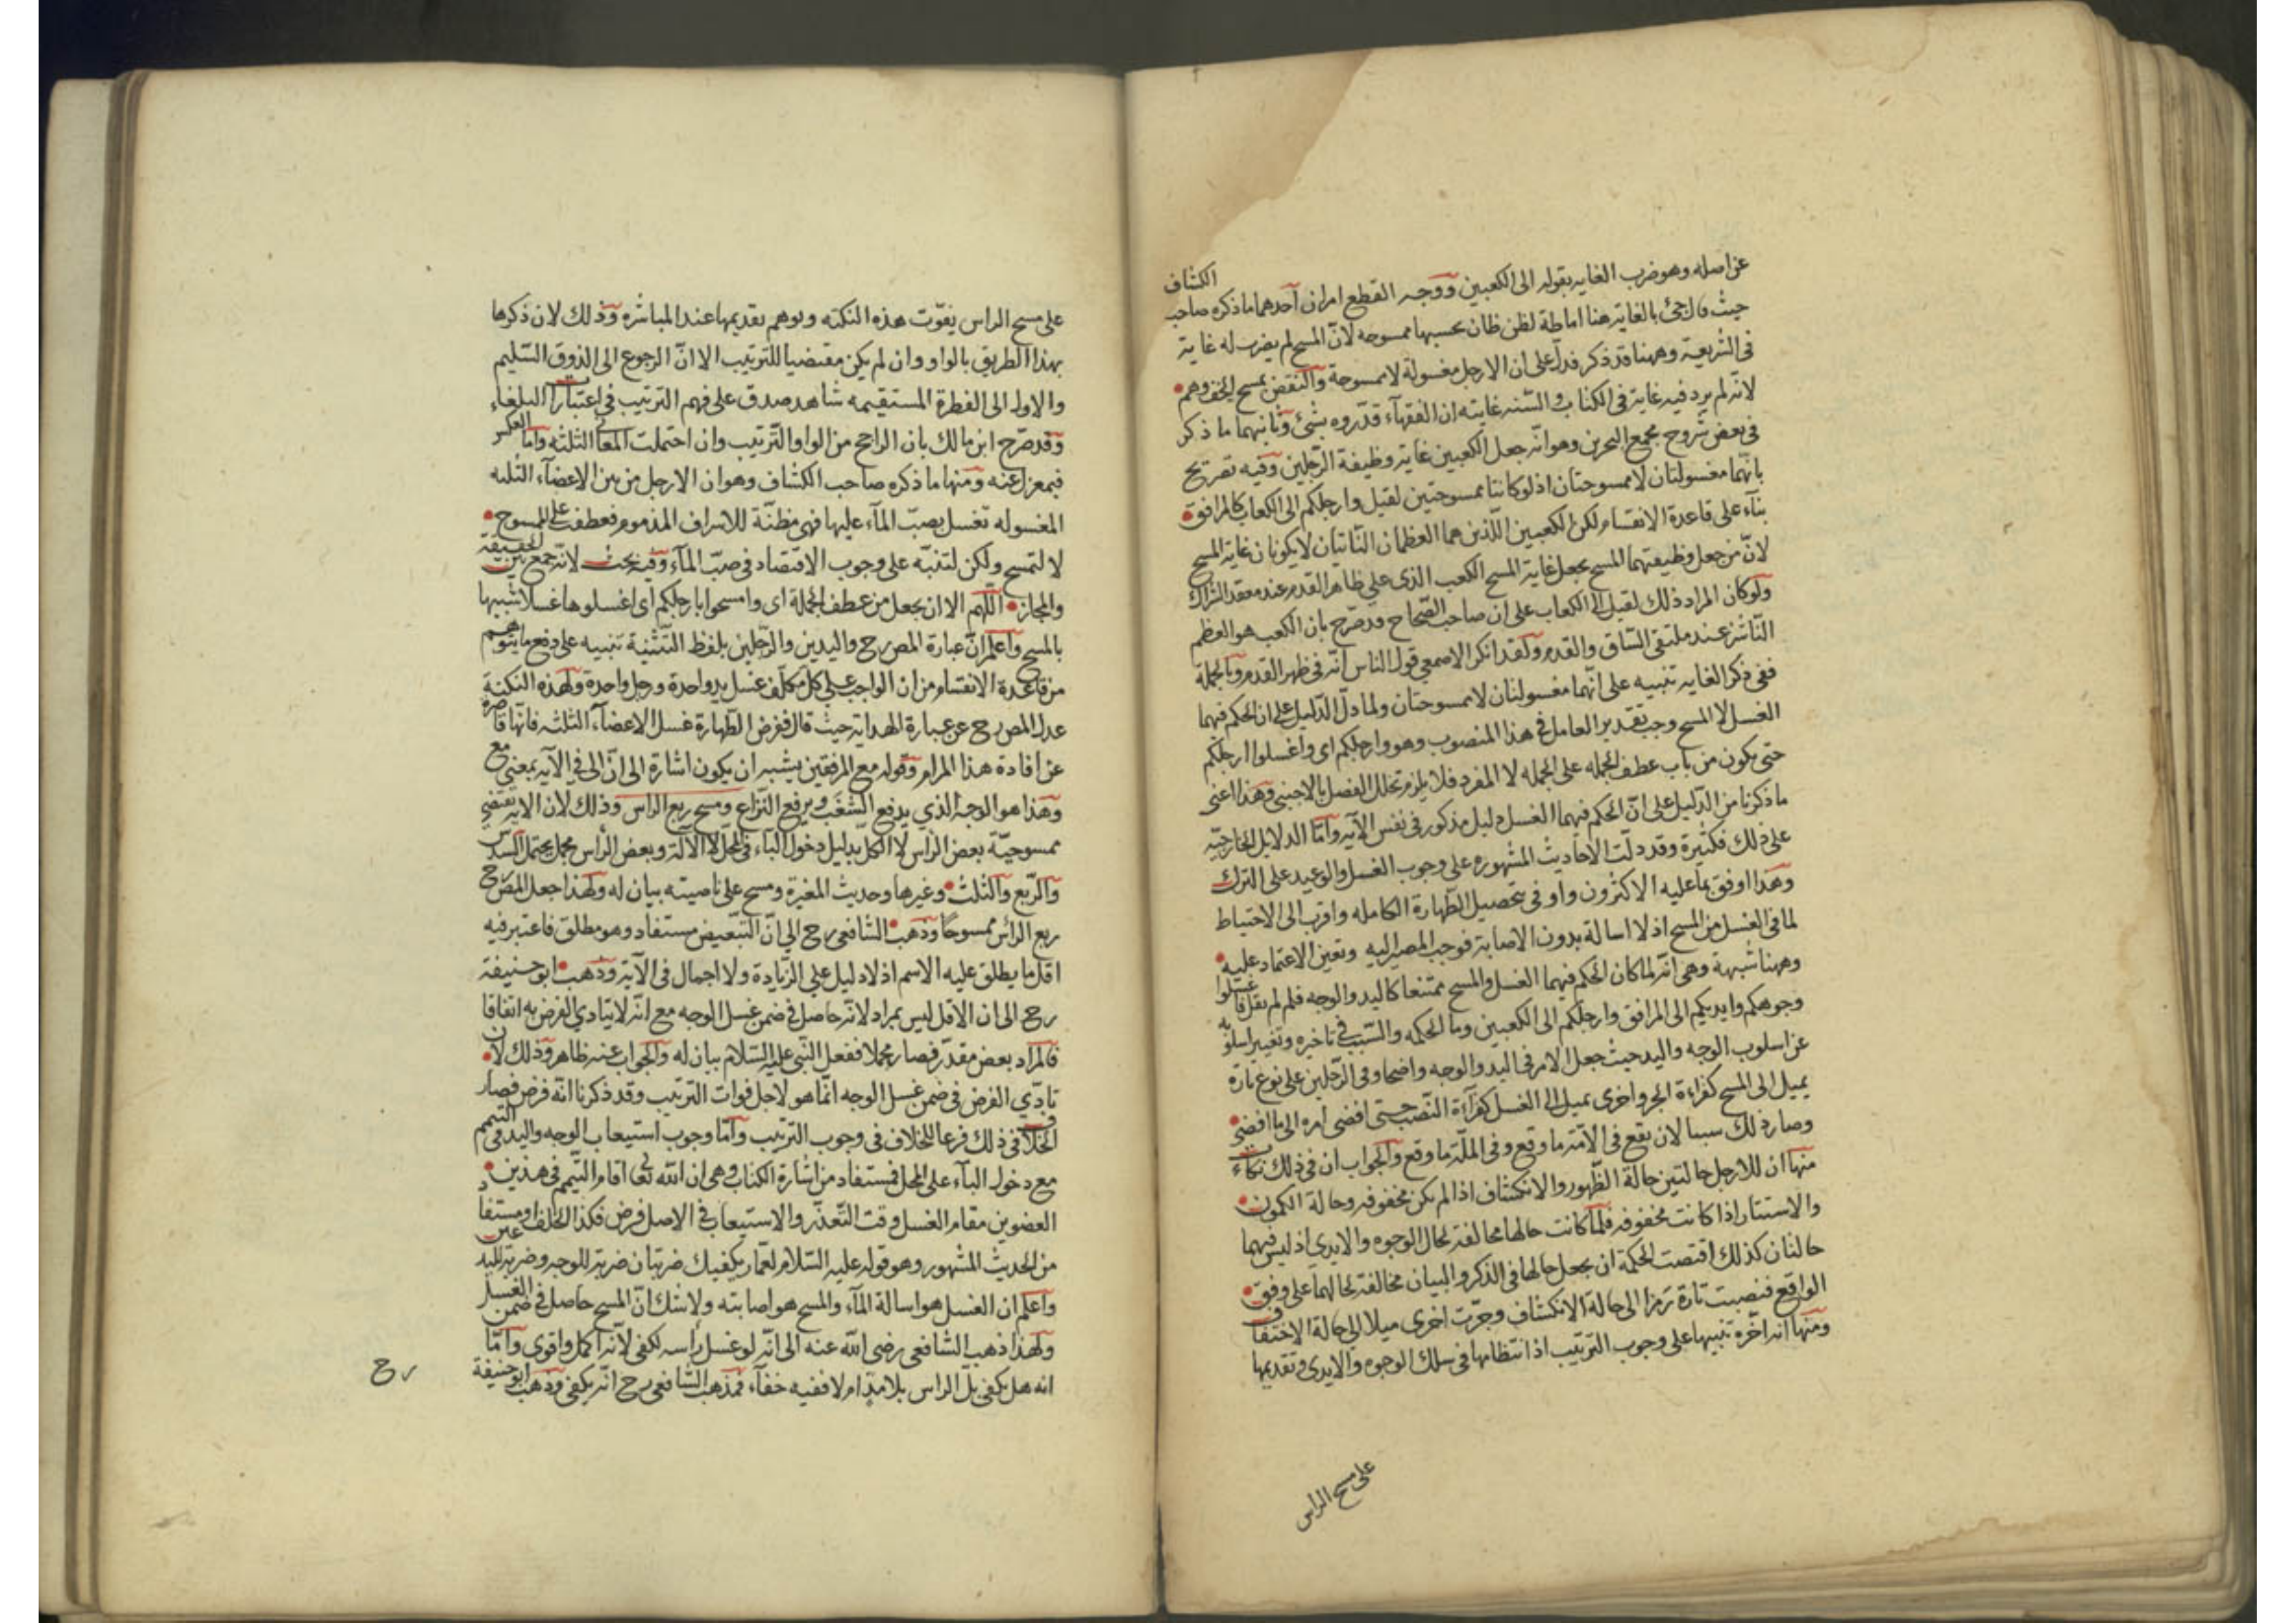 عن اصله وهو ضرب الغايه بقوله الى الكعبين ووجه القطع امران آحدهما ما ذكره صاحب الكشاف
حيث قال جئ بالغاية هنا اماطة لظن ظان يحسبها ممسوحه لانّ المسح لم يضرب له غاية
فى الشريعة وههنا قد ذكر فدلّ على ان الارجل مغسولة لا ممسوحة والنقض بمسح الخف وهم
لانّه لم يرد فيه غاية فى الكتاب والسّنه غايته ان الفقهآء قدّروه بشئ وثانيهما ما ذكر
فى بعض شروح مجمع البحرين وهو انّه جعل الكعبين غاية وظيفة الرّجلين وفيه تصريح
بانّهما مغسولتان لا ممسوحتان اذ لو كانتا ممسوحتين لقيل وارجلكم الى الكعاب كالمرافق
بنآء على قاعدة الانقسام لكن الكعبين اللّذين هما العظمان النّاتيان لا يكونان غاية المسح
لانّ من جعل وظيفتهما المسح يجعل غاية المسح الكعب الذى على ظاهر القدم عند معقد الشراك
ولو كان المراد ذلك لقيل الى الكعاب على ان صاحب الصّحاح قد صّرح بان الكعب هو العظم
النّاشز عند ملتقى السّاق والقدم ولقد انكر الاصمعى قول الناس انّه فى ظهر القدم وبالجملة
ففى ذكر الغايه تنبيه على انّهما مغسولتان لا ممسوحتان ولما دلّ الدّليل على ان الحكم فيهما
الغسل لا المسح وجب تقدير العامل فى هذا المنصوب وهو وارجلكم اى واغسلوا ارجلكم
حتى يكون من باب عطف الجمله على الجمله لا المفرد فلا يلزم تخلل الفصل بالاجنبى وهذا اعنى
ما ذكرنا من الدّليل على انّ الحكم فيهما الغسل دليل مذكور فى نفس الآيه وامّا الدلايل الخارجيّه
على ذلك فكثيرة وقد دلّت الاحاديث المشهوره على وجوب الغسل والوعيد على الترك
وهذا اوفق بما عليه الاكثرون واوفى بتحصيل الطّهارة الكامله واقرب الى الاحتياط
لما فى الغسل من المسح اذ لا اسالة بدون الاصابة فوجب المصير اليه وتعين الاعتماد عليه
وههنا شبهة وهى انّه لما كان الحكم فيهما الغسل والمسح ممتنعا كاليد والوجه فلم لم يقل فاغسلوا
وجوهكم وايديكم الى المرافق وارجلكم الى الكعبين وما الحكمه والسّبب فى تاخيره وتغيير اسلوبه
عن اسلوب الوجه واليد حيث جعل الامر فى اليد والوجه واضحا وفى الرّجلين على نوع تارة
يميل الى المسح كقراءة الجر واخرى يميل الى الغسل كقرآءة النّصب حتى افضى امره الى ما افضى
وصار ذلك سببا لان يقع فى الامّة ما وقع وفى الملّة ما وقع والجواب ان فى ذلك نكات
منها ان للارجل حالتين حالة الظّهور والانكشاف اذا لم يكن مخفوفه وحالة الكمون
والاستتار اذا كانت مخفوفه فلمّا كانت حالها مخالفة لحال الوجوه والايدى اذ ليس فيهما
حالتان كذلك اقتضت الحكمة ان يجعل حالها فى الذكر والبيان مخالفة لحالهما على وفق
الواقع فنصبت تارة رمزا الى حالة الانكشاف وجرّت اخرى ميلا الى حالة الاختفا
ومنها انه اخّره تنبيها على وجوب الترتيب اذ انتظامها فى سلك الوجوه والايدى وتقديمها
على مسح الراس
على مسح الراس يفوّت هذه النكته ويوهم تقديمها عند المباشره وذلك لان ذكرها
بهذا الطريق بالواو وان لم يكن مقتضيا للترتيب الا انّ الرجوع الى الذوق السّليم
والاول الى الفطرة المستقيمه شاهد صدق على فهم الترتيب فى اعتبارات البلغاء
وقد صرّح ابن مالك بان الراجح من الواو التّرتيب وان احتملت المعانى الثلثه وامّا العكس
فبمعزل عنه ومنها ما ذكره صاحب الكشاف وهو ان الارجل من بين الاعضآء الثلثه
المغسوله تغسل بصبّ المآء عليها فهى مظنّة للاسراف المذموم فعطفت على الممسوح
لا لتمسح ولكن لتنبّه على وجوب الاقتصاد فى صبّ المآء وفيه بحث لانّه جمع بين الحقيقة
والمجاز اللّهم الا ان يجعل من عطف الجملة اى وامسحوا بارجلكم اى اغسلوها غسلا شبيها
بالمسح واعلم انّ عبارة المص رح واليدين والرّجلين بلفظ التّثنية تنبيه على دفع ما يتوهّم
من قاعدة الانقسام من ان الواجب على كل مكلّف غسل يد واحدة ورجل واحدة ولهذه النكتة
عدل المص رح عن عبارة الهداية حيث قال ففرض الطّهارة غسل الاعضآء الثلثه فانّها قاصرة
عن افادة هذا المرام وقوله مع المرفقين يشبه ان يكون اشارة الى انّ الى فى الآيه بمعنى مع
وهذا هو الوجه الذي يدفع الشّغب ويرفع النّزاع ومسح ربع الراس وذلك لان الايه تقتضى
ممسوحيّة بعض الرّاس لا الكل بدليل دخول البآء فى المحلّ لا الآلة وبعض الرّأس مجمل يحتمل السدس
والرّبع والثلث وغيرها وحديث المغيرة ومسح على ناصيته بيان له ولهذا جعل المص رح
ربع الرأس ممسوحًا وذهب الشافعى رح الى انّ التبّعيض مستفاد وهو مطلق فاعتبر فيه
اقل ما يطلق عليه الاسم اذ لا دليل على الزّيادة ولا اجمال فى الآية وذهب ابو حنيفة
رح الى ان الاقل ليس بمراد لانّه حاصل فى ضمن غسل الوجه مع انّه لا يتادي الفرض به اتفاقا
فالمراد بعض مقدّر فصار مجملا ففعل النّبى عليه السّلام بيان له والجواب عنه ظاهر وذلك لان
تادّي الفرض فى ضمن غسل الوجه انّما هو لاجل فوات الترتيب وقد ذكرنا انّه فرض فصار
الخلاف فى ذلك فرعا للخلاف فى وجوب الترتيب وامّا وجوب استيعاب الوجه واليد فى التيمم
مع دخول البآء على المحل فمستفاد من اشارة الكتاب وهى ان الله تعالى اقام التيّمم فى هذين
العضوين مقام الغسل وقت التّعذّر والاستيعاب فى الاصل فرض فكذا الخلف او مستفاد
من الحديث المشهور وهو قوله عليه السّلام لعمّار يكفيك ضربتان ضربة للوجه وضربة لليدين
واعلم ان الغسل هو اسالة المآء والمسح هو اصابته ولا شك انّ المسح حاصل فى ضمن الغسل
ولهذا ذهب الشافعى رضى الله عنه الى انّه لو غسل رأسه لكفى لانّه اكمل واقوى وامّا
انه هل يكفى بلّ الراس بلا مدّ ام لا ففيه خفآء فمذهب الشّافعى رح انّه يكفى وذهب ابو حنيفة
رح